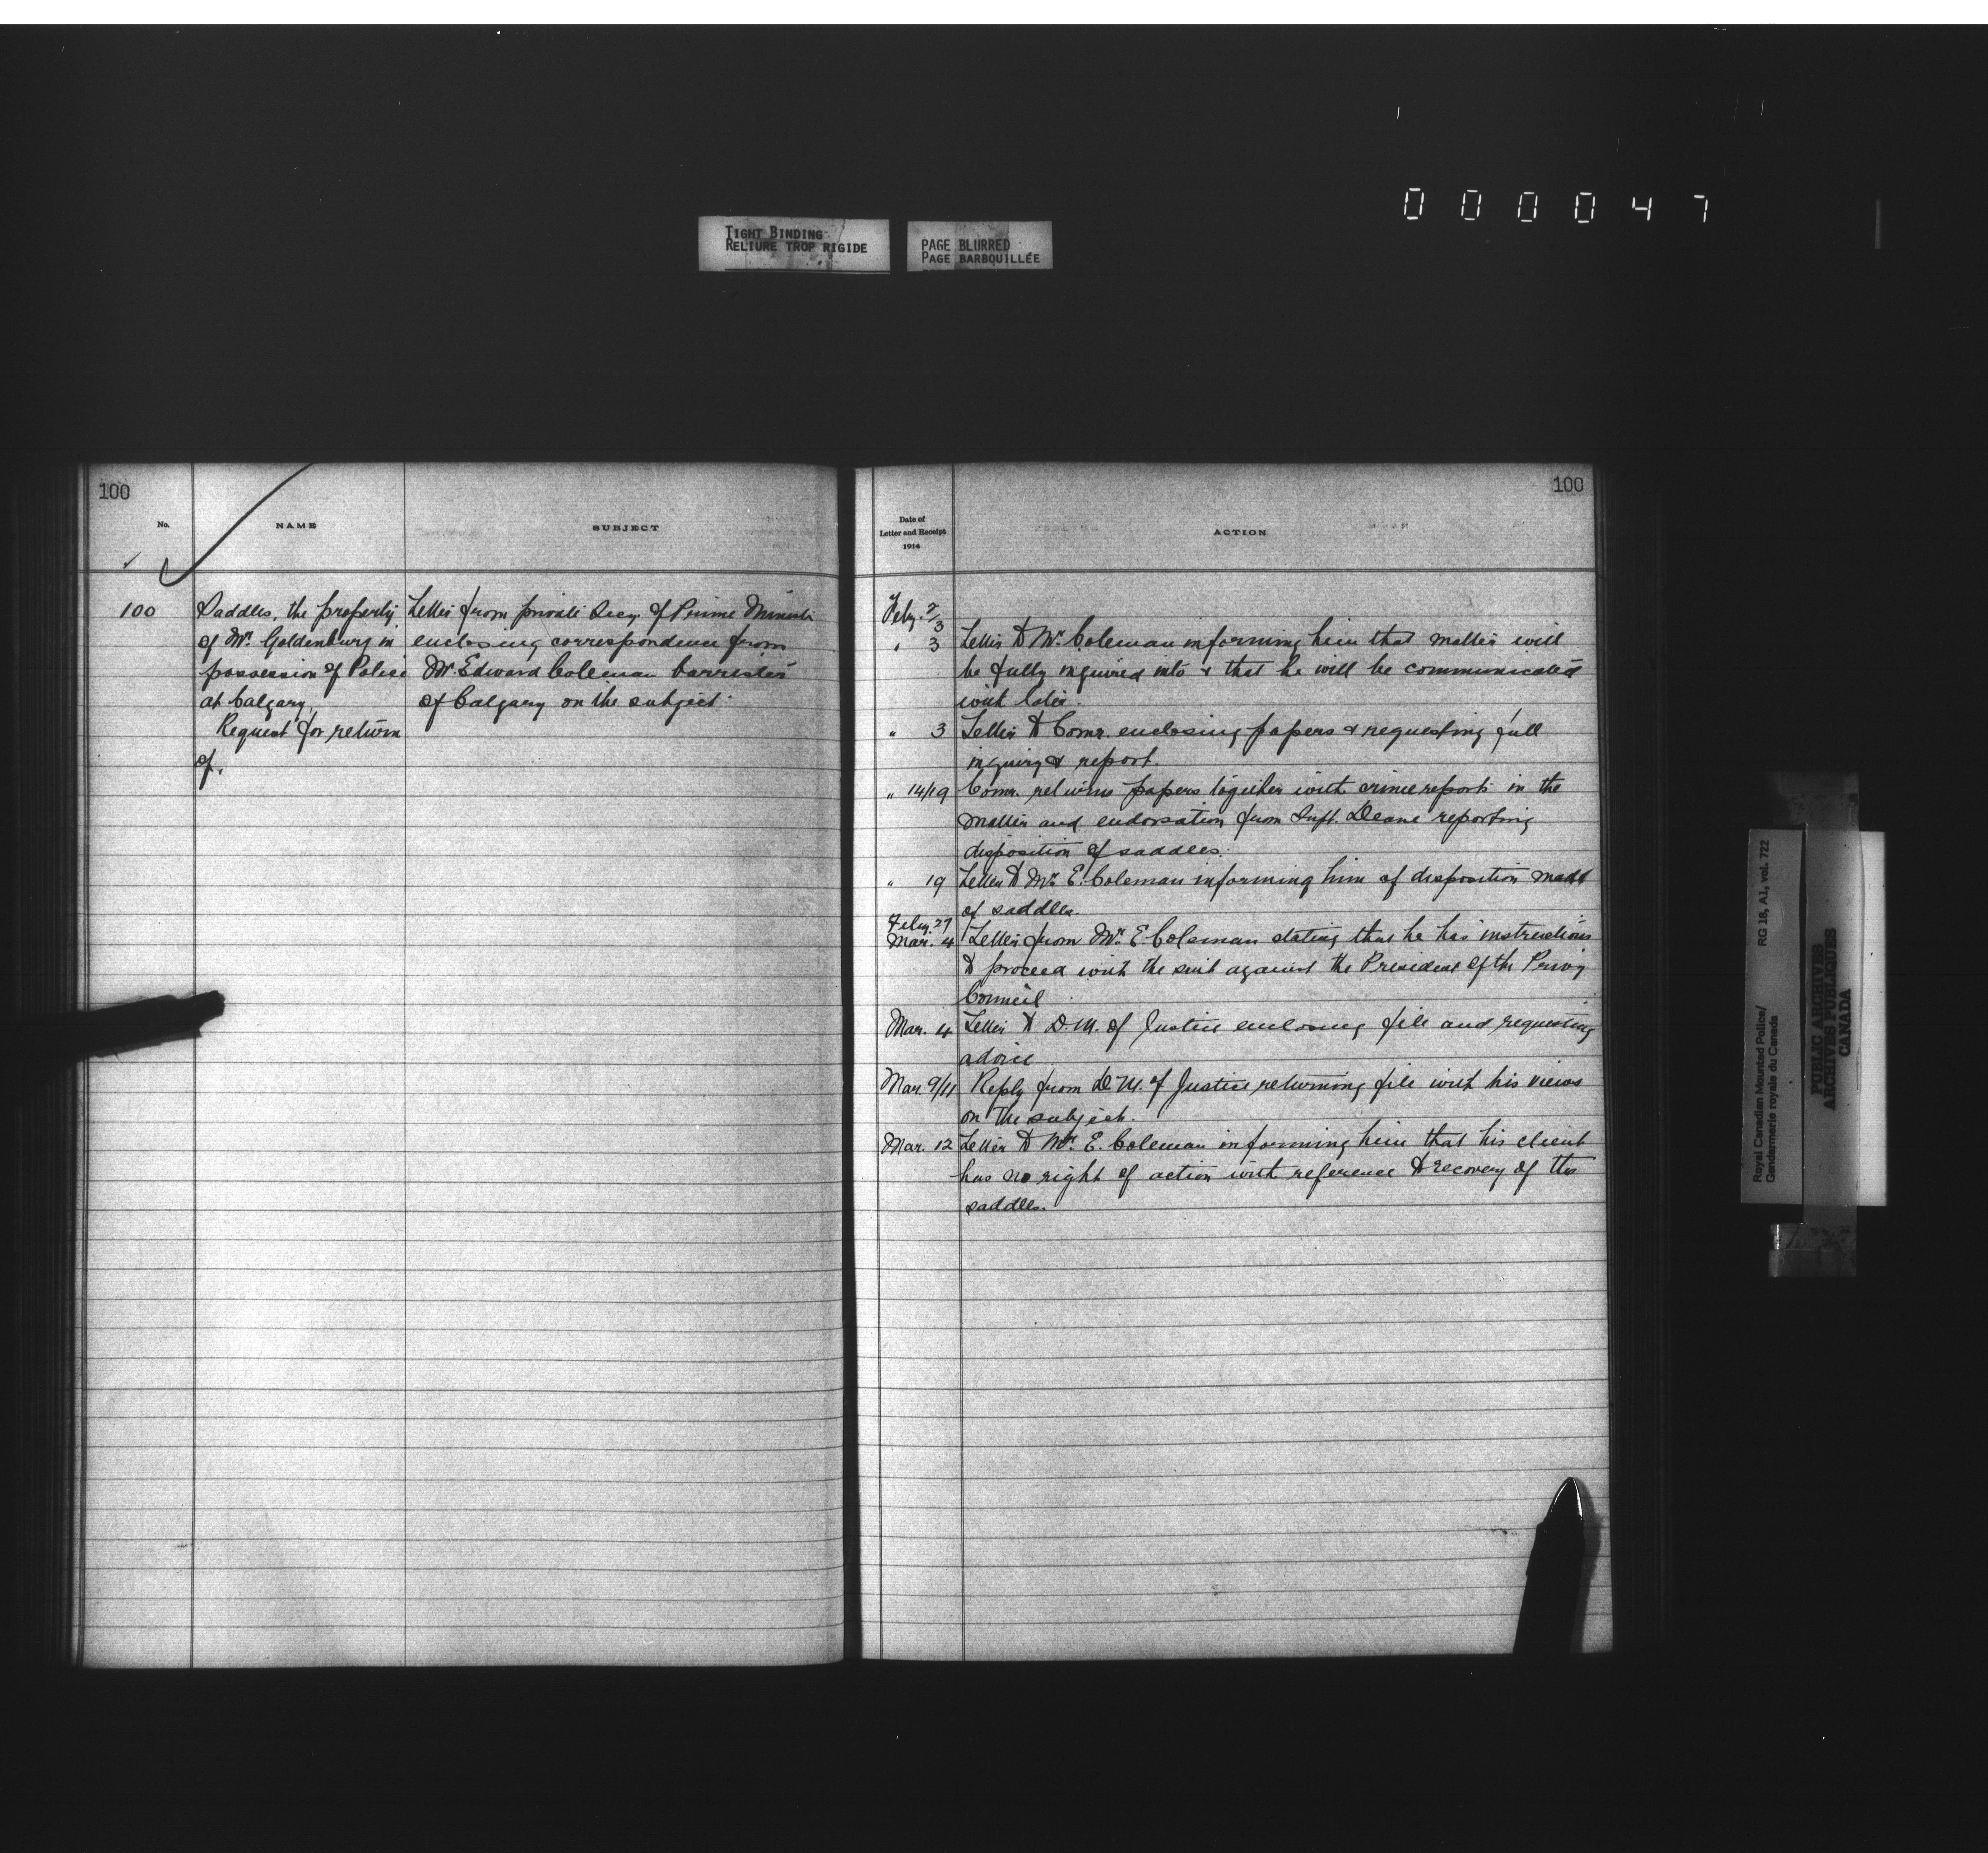 000047
TIGHT BINDING
RELIURE TROP RIGIDE
PAGE BLURRED
PAGE BARBOUILLÉE
100
No.
NAME
SUBJECT
100 Saddles, the property Letter from private Secy. of Prime Minister
of Mr. Goldenburg in enclosing correspondence from
possession of Police Mr Edward Coleman barrister
at Calgary, of Calgary on the subject
Request for return
of.
100
Date of
Letter and Receipt
1914
ACTION
Feby. 2/3
" 3 Letter to Mr. Coleman informing him that matter will
be fully inquired into & that he will be communicated
with later.
" 3 Letter to Comr. enclosing papers & requesting full
inquiry & report.
" 14/19 Comr. returns papers together with crime reports in the
matter and endorsation from Supt. Deane reporting
disposition of saddles.
" 19 Letter to Mr. E. Coleman informing him of disposition made
of saddles.
Feby. 27
Mar. 4 Letter from Mr. E. Coleman stating that he has instructions
to proceed with the suit against the President of the Privy
Council
Mar. 4 Letter to D.M. of Justice enclosing file and requesting
advice
Mar. 9/11 Reply from D.M. of Justice returning file with his views
on the subject.
Mar. 12 Letter to Mr. E. Coleman informing him that his client
has no right of action with reference to recovery of the
saddles.
Royal Canadian Mounted Police/ RG 18, A1, vol. 722
Gendarmerie royale du Canada
PUBLIC ARCHIVES
ARCHIVES PUBLIQUES
CANADA